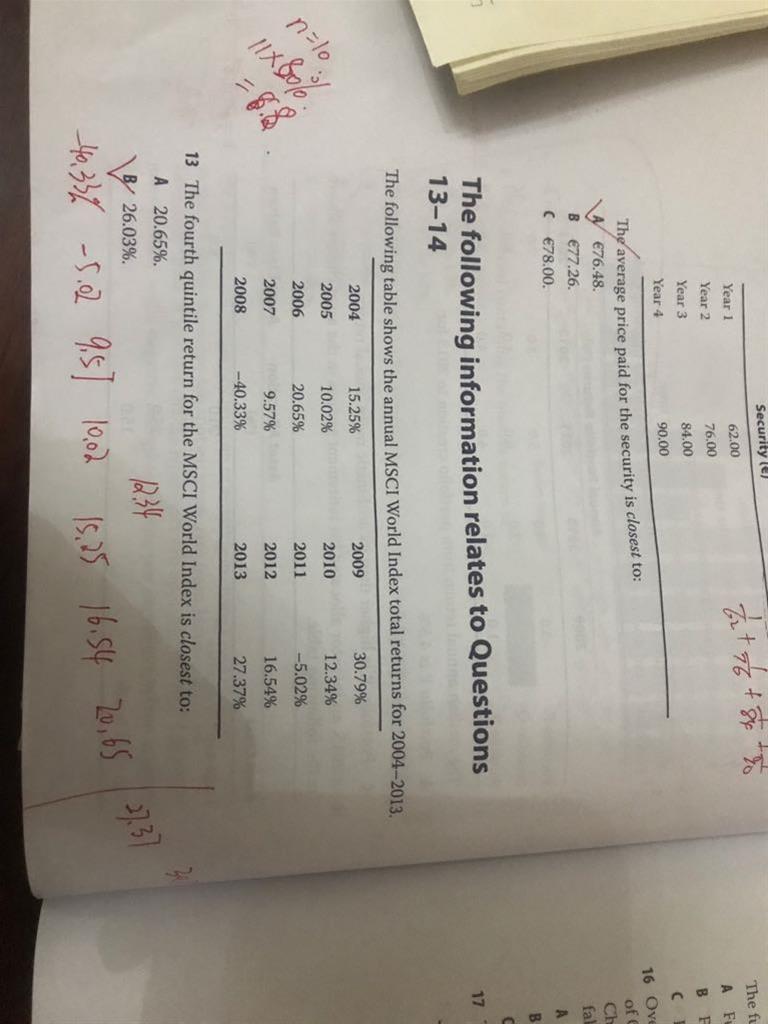 Security (€)
Year 1 62.00
Year 2 76.00
Year 3 84.00
Year 4 90.00
The average price paid for the security is closest to:
A €76.48.
B €77.26.
C €78.00.
The following information relates to Questions
13–14
The following table shows the annual MSCI World Index total returns for 2004–2013.
2004 15.25% 2009 30.79%
2005 10.02% 2010 12.34%
2006 20.65% 2011 −5.02%
2007 9.57% 2012 16.54%
2008 −40.33% 2013 27.37%
n=10
11×80%
=8.8
13 The fourth quintile return for the MSCI World Index is closest to:
A 20.65%.
B 26.03%.
12.34
27.37
-40.33% -5.02 9.57 10.02 15.25 16.54 20.65
A
B
C
16
of
A
B
17